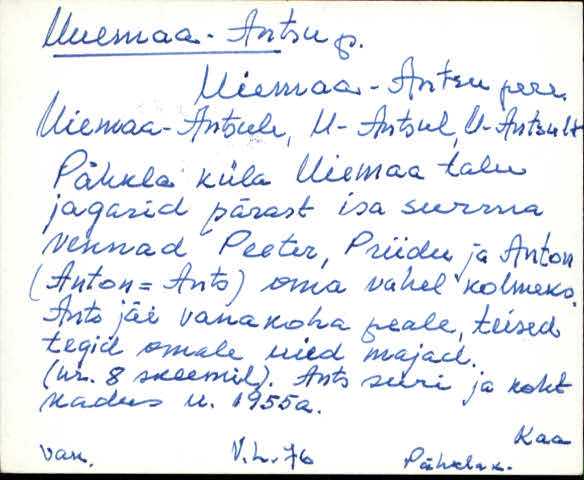 Uuemaa-Antsu p.
Uiemaa-Antsu pere
Uiemaa-Antsule, U-Antsul, U-Antsult
Pähkla küla Uiemaa talu
jagasid pärast isa surma
vennad Peeter, Priidu ja Anton
(Anton = Ants) oma vahel kolmeks.
Ants jäi vanakoha peale, teised
tegid omale uied majad.
(nr. 8 skeemil). Ants suri ja koht
kadus u. 1955a.
Kaa
van. V.L. 76 Pähkla k.